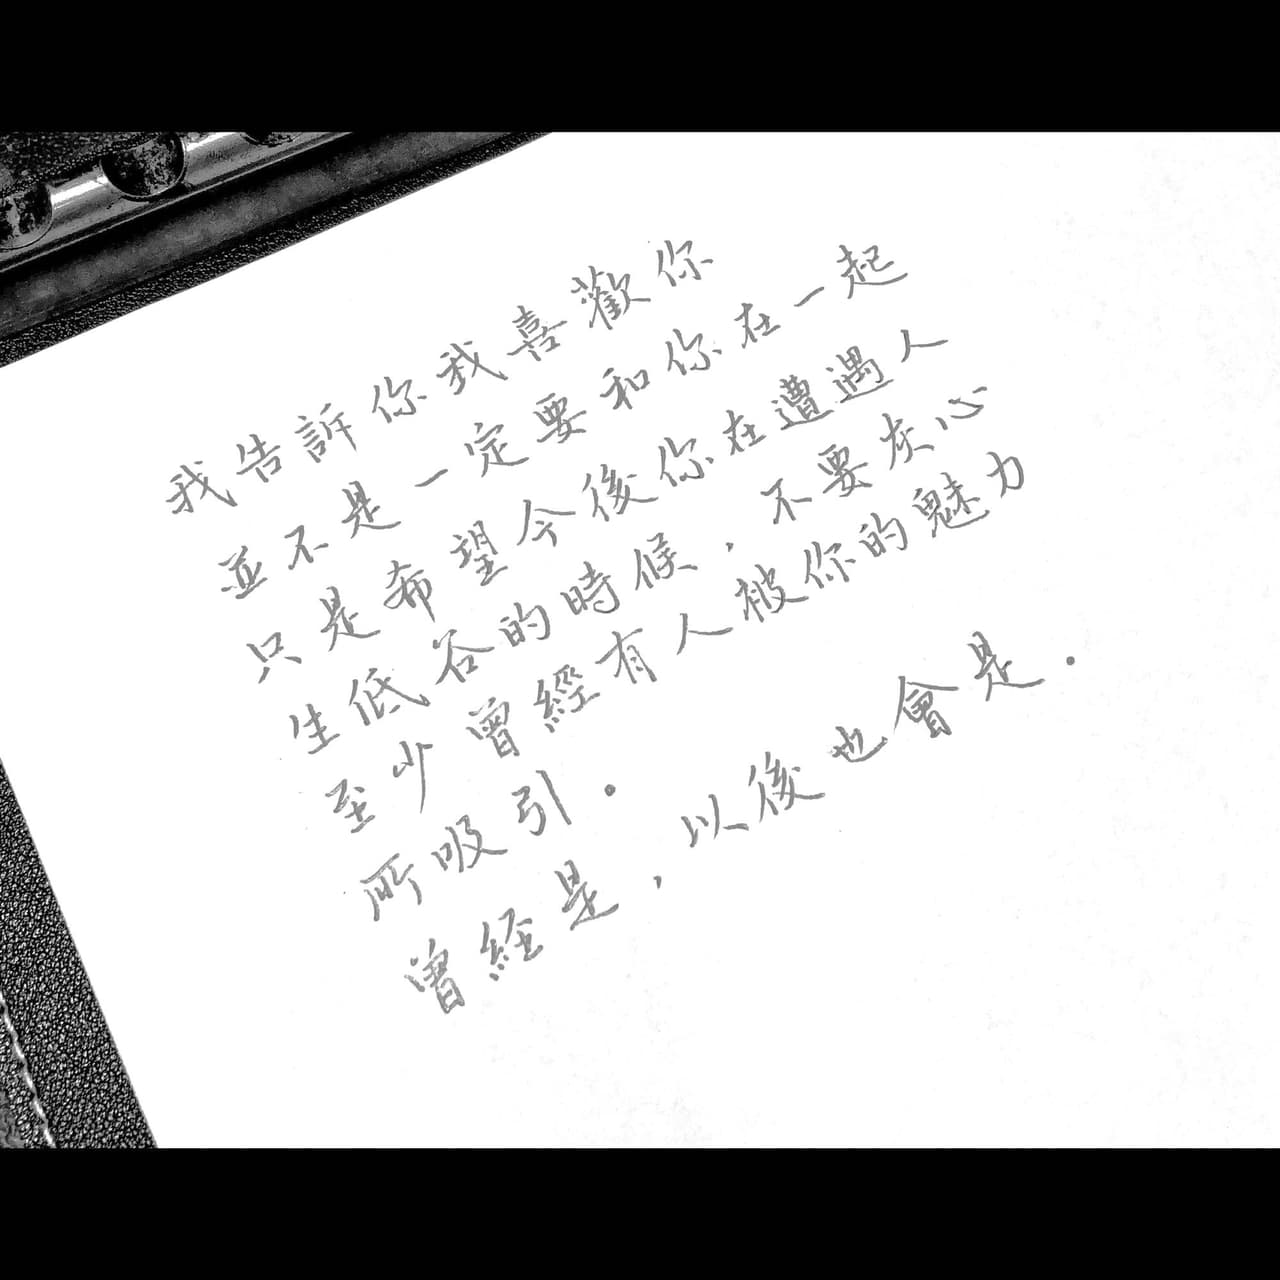 我告訴你我喜歡你
並不是一定要和你在一起
只是希望今後你在遭遇人
生低谷的時候，不要灰心
至少曾經有人被你的魅力
所吸引．
曾經是，以後也會是．